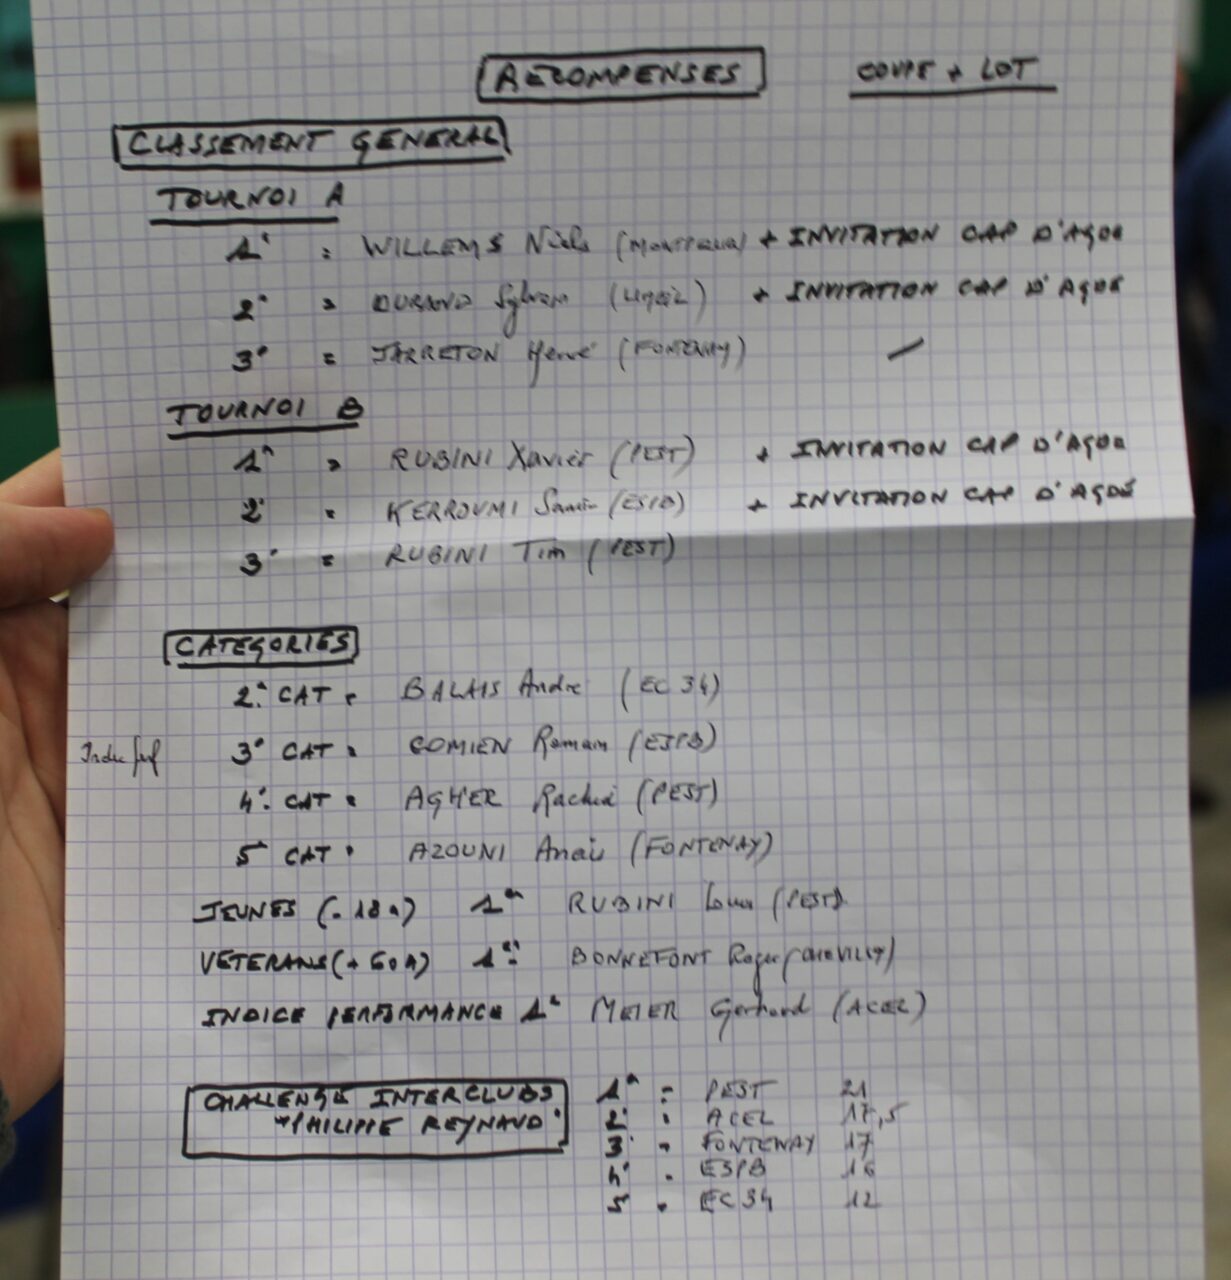 RECOMPENSES COUPE + LOT
CLASSEMENT GENERAL
TOURNOI A
1° = WILLEMS Niels + INVITATION CAP D'AGDE
2° = DURAND Sylvain + INVITATION CAP D'AGDE
3° = JARRETON Hervé (FONTENAY) —
TOURNOI B
1er = RUBINI Xavier (PEST) + INVITATION CAP D'AGDE
2° = KERROUMI Samir (ESPB) + INVITATION CAP D'AGDE
3° = RUBINI Tim (PEST)
CATEGORIES
2° CAT = BALAIS André (EC 34)
3° CAT = Romain (ESPB)
4° CAT = AGHER Rachid (PEST)
5° CAT = AZOUNI Anaïs (FONTENAY)
JEUNES (- 18 a) 1er RUBINI (PEST)
VETERANS (+ 60 A) 1er BONNEFONT Roger
INDICE PERFORMANCE 1er MEIER Gerhard (ACEL)
CHALLENGE INTERCLUBS
"PHILIPPE REYNAUD"
1er = PEST 21
2° = ACEL 17,5
3° = FONTENAY 17
4° = ESPB 16
5° = EC 34 12